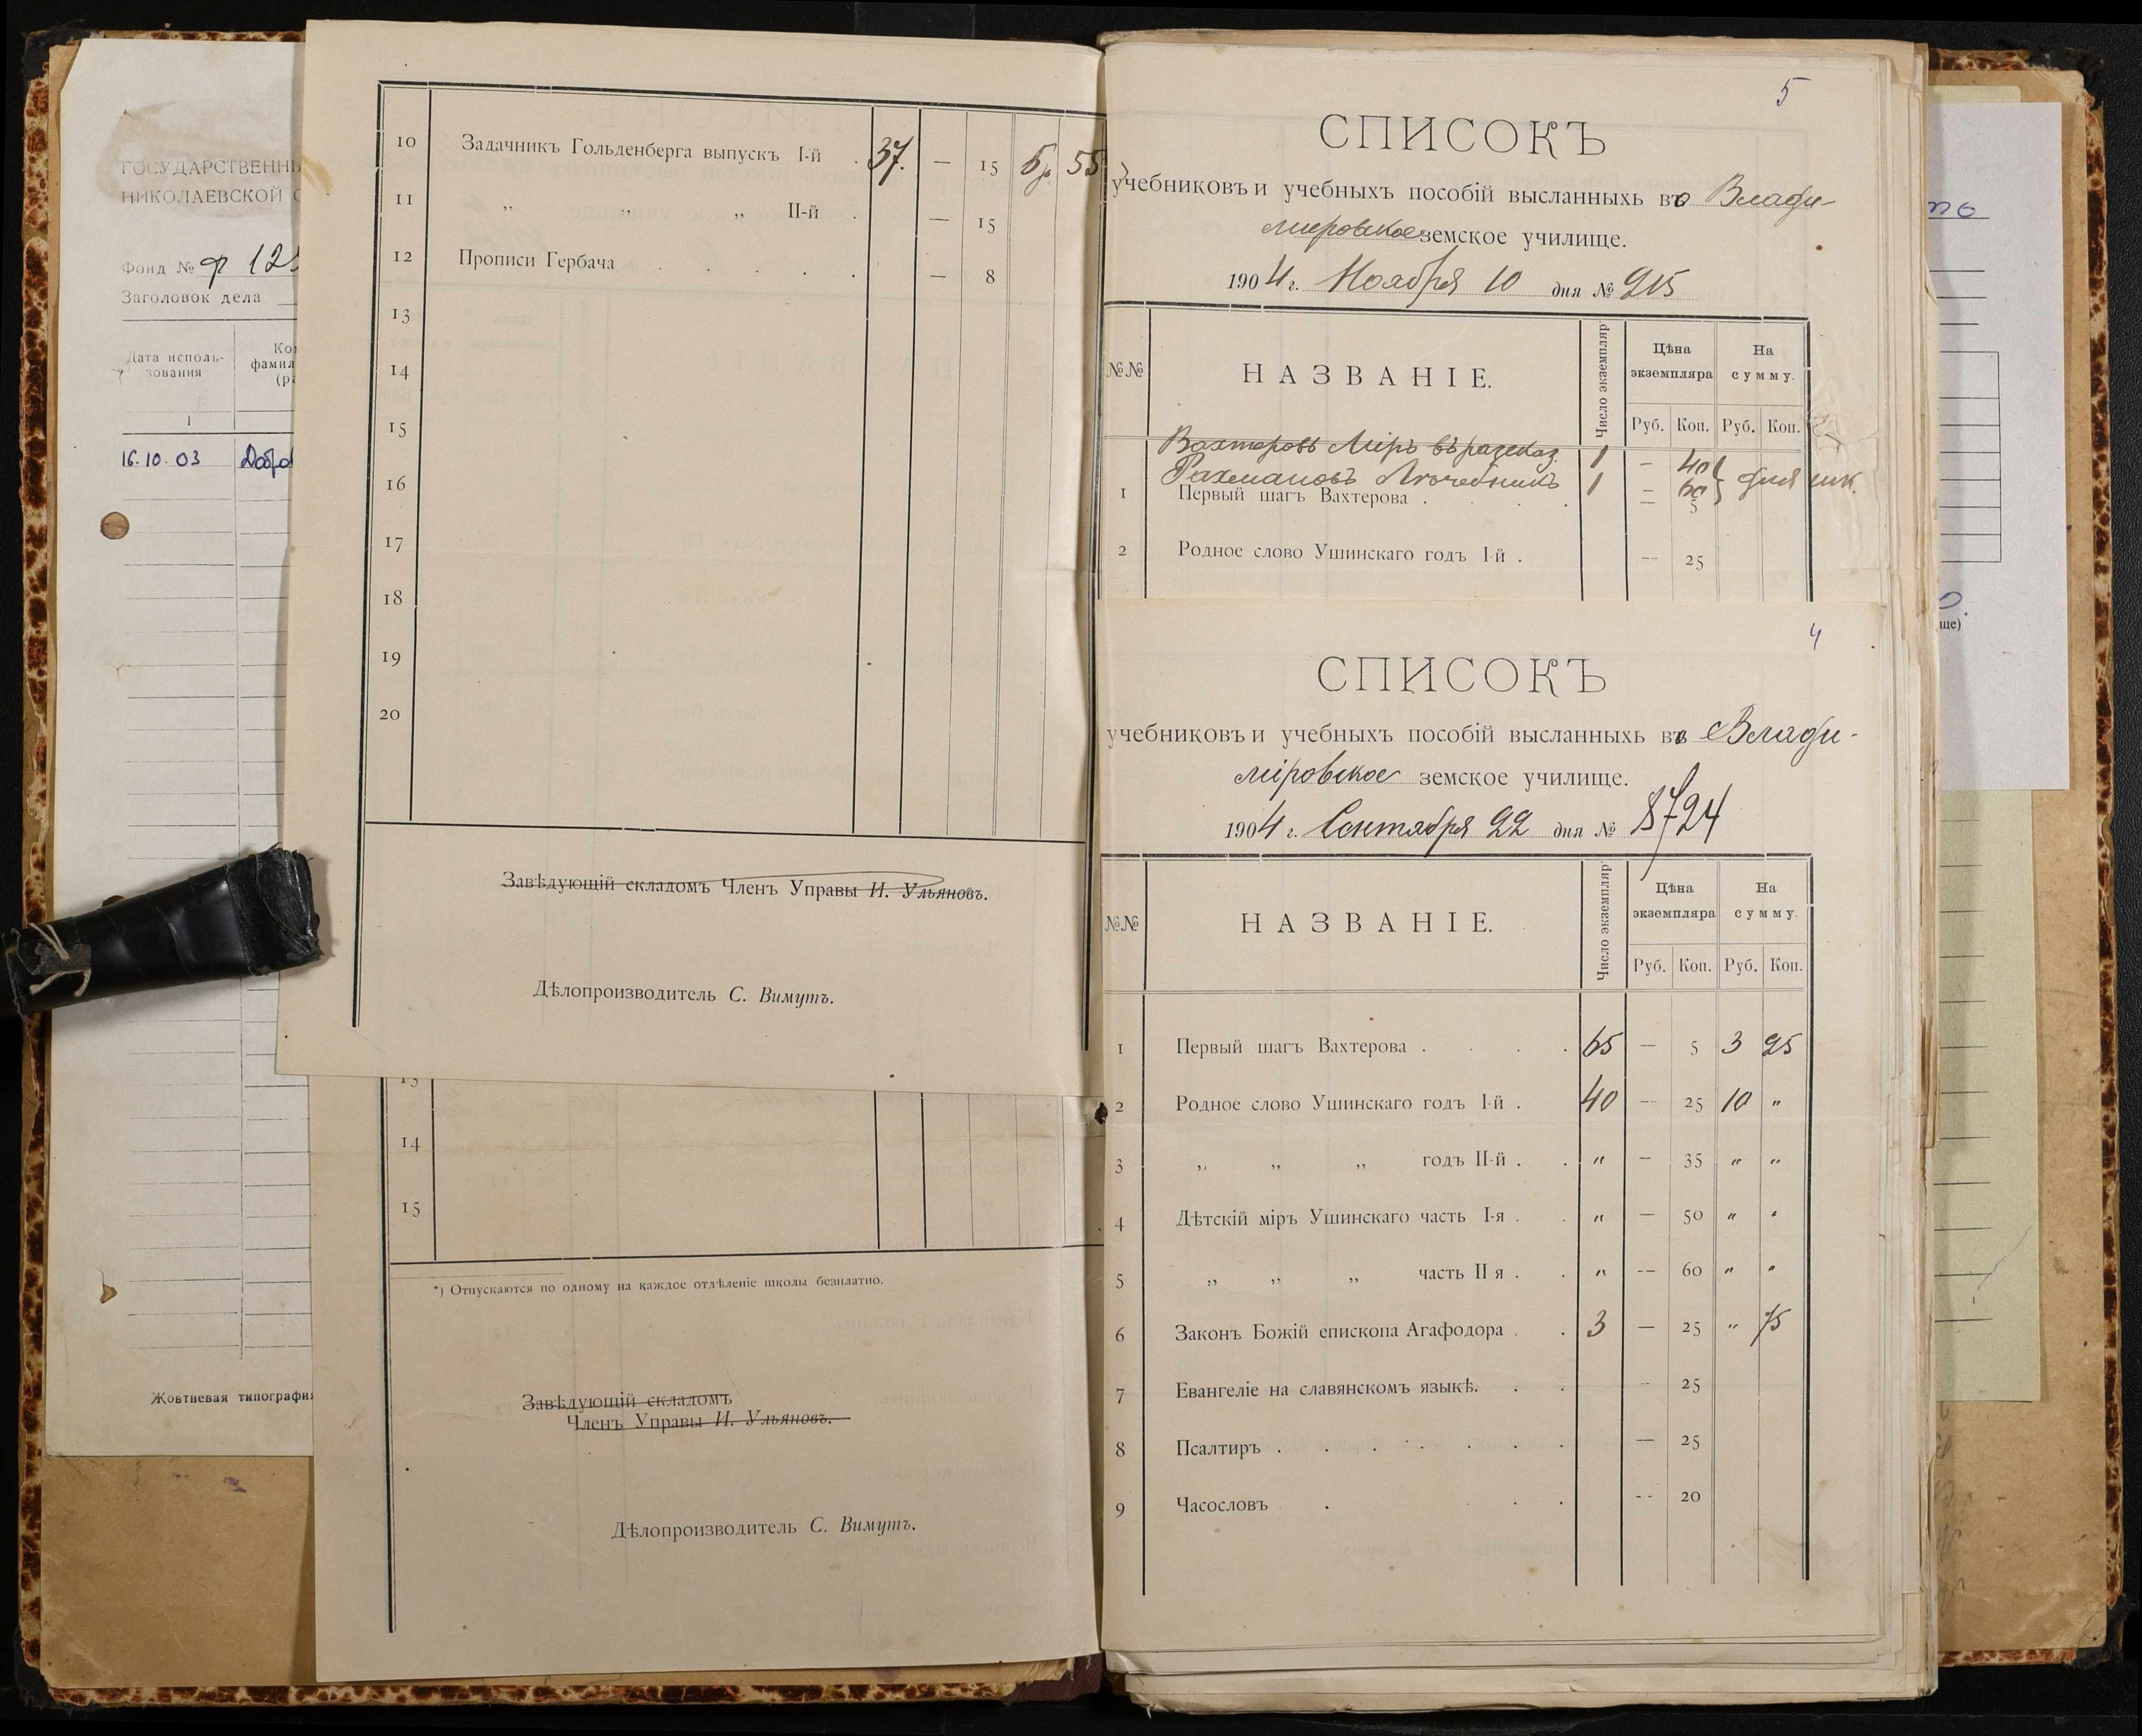 ГОСУДАРСТВЕННЫ
НИКОЛАЕВСКОЙ С
Фонд № Ф 12
Заголовок дела
Дата исполь-
зования
Ко
фамил
1
16.10.03 Добро
Жовтневая типография
10 Задачникъ Гольденберга выпускъ I-й . 37. — 15 5р. 55
11 „ „ „ II-й . — 15
12 Прописи Гербача . . . . . — 8
13
14
15
16
17
18
19
20
Завѣдующій складомъ Членъ Управы И. Ульяновъ.
Дѣлопроизводитель С. Вимутъ.
13
14
15
*) Отпускаются по одному на каждое отдѣленіе школы безплатно.
Завѣдующій складомъ
Членъ Управы И. Ульяновъ.
Дѣлопроизводитель С. Вимутъ.
5
СПИСОКЪ
учебниковъ и учебныхъ пособій высланныхь во Влади-
мировское земское училище.
1904 г. Ноября 10 дня № 915
№№
НАЗВАНІЕ.
Число экземпляр
Цѣна
экземпляра
На
сумму.
Руб. Коп. Руб. Коп.
Вахтеровъ Міръ въ разсказ. 1 — 40
Рахмановъ Лѣчебникъ 1 — 60 } для шк.
1 Первый шагъ Вахтерова . . . . — 5
2 Родное слово Ушинскаго годъ I-й . — 25
4
СПИСОКЪ
учебниковъ и учебныхъ пособій высланныхь во Влади-
міровское земское училище.
1904 г. Сентября 22 дня № 8724
№№
НАЗВАНІЕ.
Число экземпляр
Цѣна
экземпляра
На
сумму.
Руб. Коп. Руб. Коп.
1 Первый шагъ Вахтерова . . . . 65 — 5 3 25
2 Родное слово Ушинскаго годъ I-й . 40 — 25 10 „
3 „ „ „ годъ II-й . . „ — 35 „ „
4 Дѣтскій міръ Ушинскаго часть I-я . . „ — 50 „ „
5 „ „ „ часть II я . . „ — 60 „ „
6 Законъ Божій епископа Агафодора . . 3 — 25 „ 75
7 Евангеліе на славянскомъ языкѣ. . . — 25
8 Псалтиръ . . . . . . . — 25
9 Часословъ . . . — 20
ще)